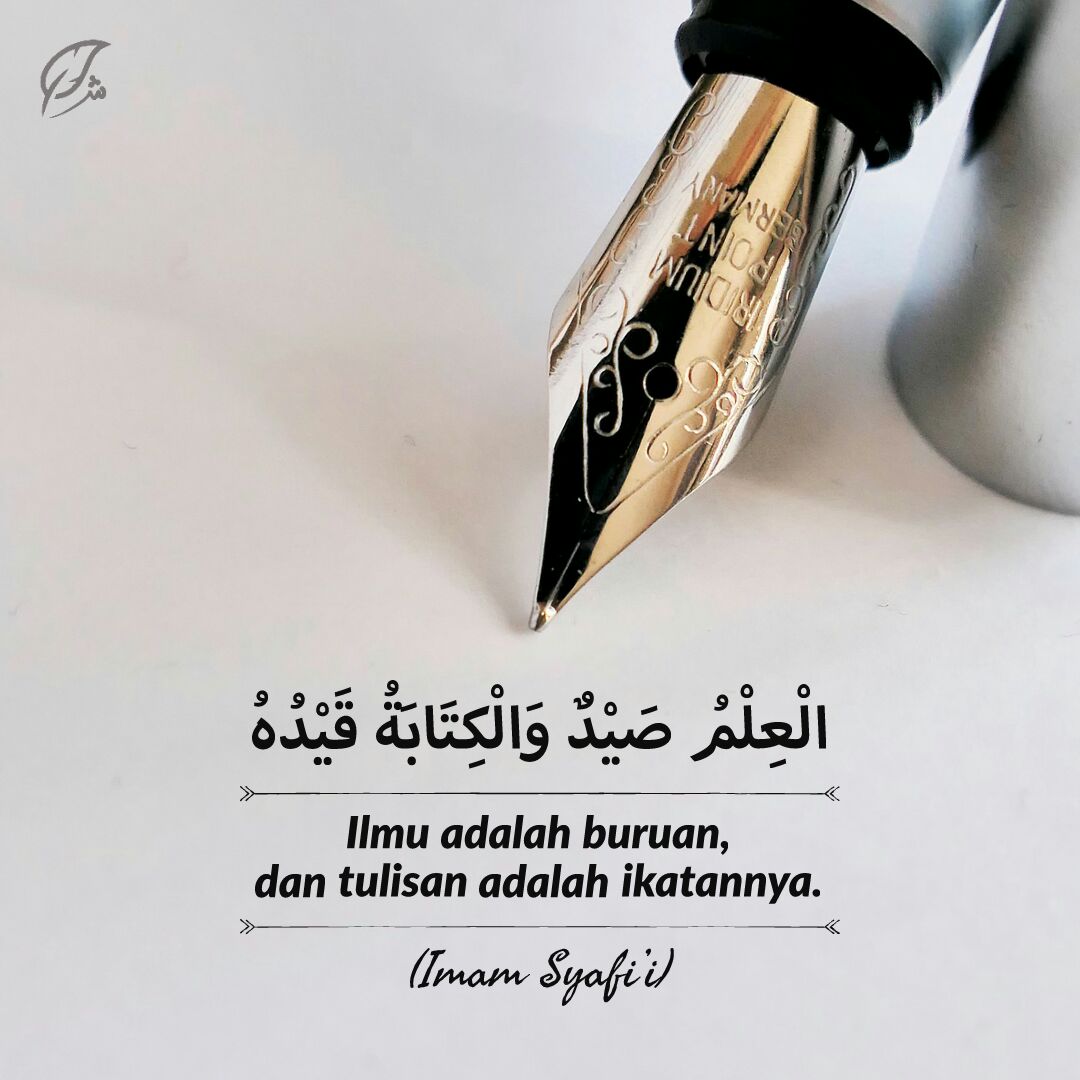 IRIDIUM
POINT
GERMANY
الْعِلْمُ صَيْدٌ وَالْكِتَابَةُ قَيْدُهُ
Ilmu adalah buruan,
dan tulisan adalah ikatannya.
(Imam Syafi'i)